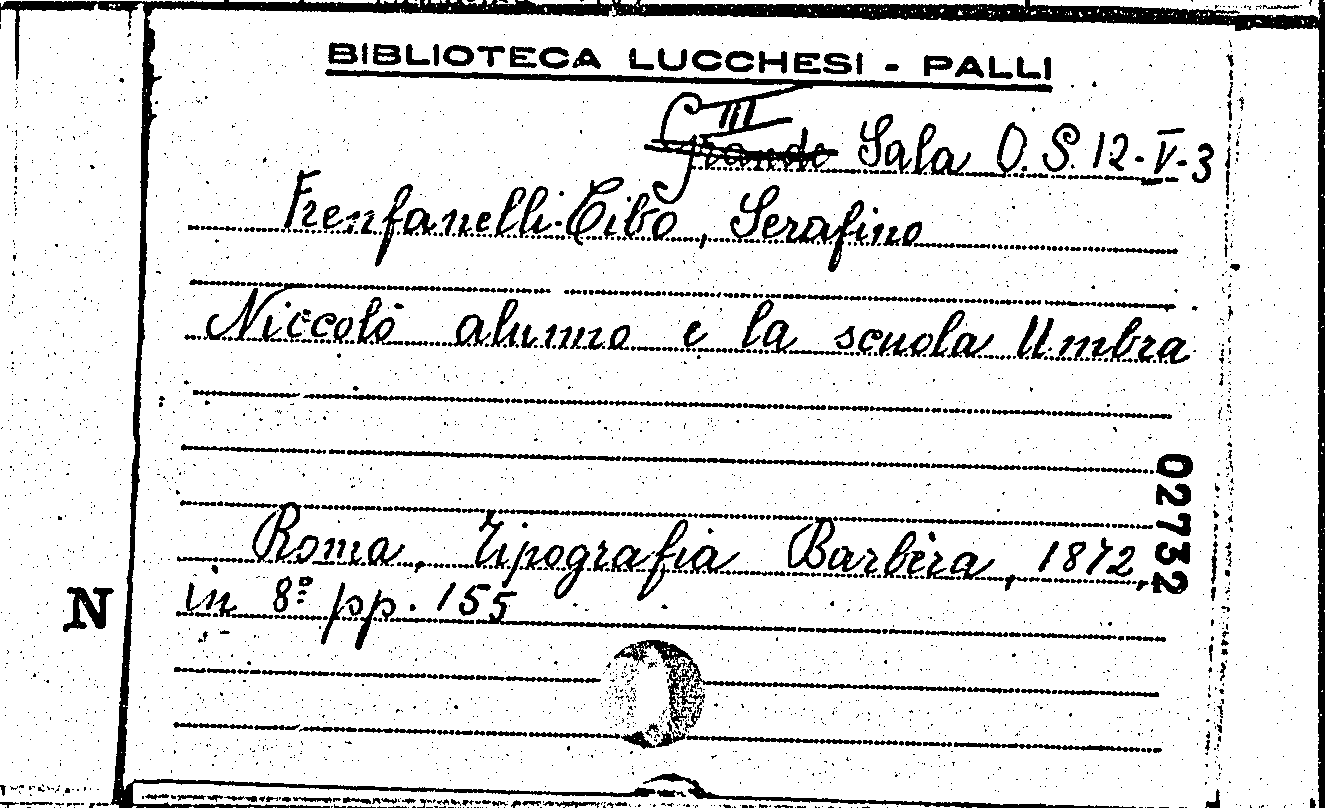 BIBLIOTECA LUCCHESI - PALLI
III
Grande Sala O. S. 12-V-3
Frenfanelli-Cibo, Serafino
Niccolò alunno e la scuola Umbra
Roma, Tipografia Barbèra, 1872,
in 8º pp. 155
02732
N